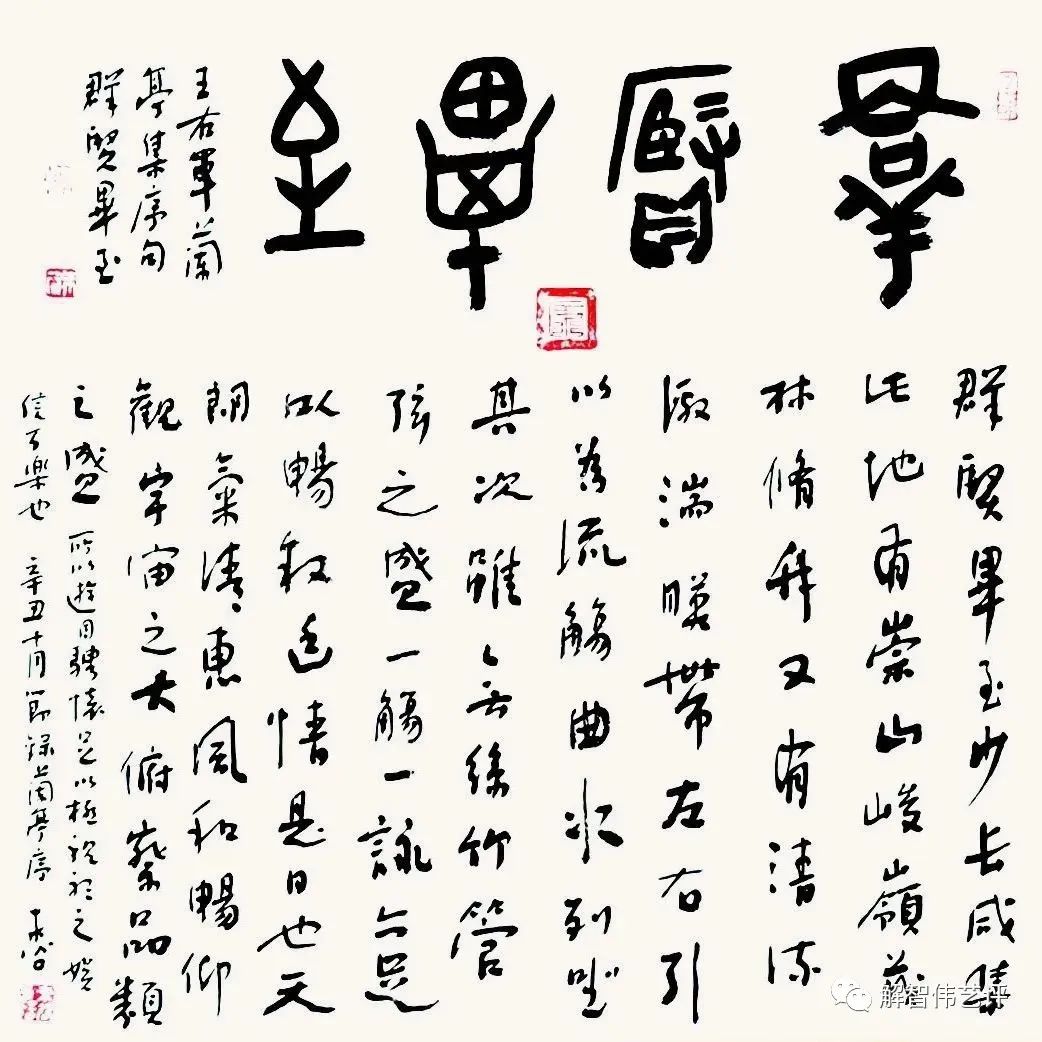 羣賢畢至
王右軍蘭
亭集序句
群賢畢至
群賢畢至少長咸集
此地有崇山峻嶺茂
林脩竹又有清流
激湍暎帶左右引
以為流觴曲水列坐
其次雖無絲竹管
弦之盛一觴一詠亦足
以暢叙幽情是日也天
朗氣清惠風和暢仰
觀宇宙之大俯察品類
之盛所以遊目騁懷足以極視聽之娛
信可樂也 辛丑十月節錄蘭亭序
解智伟艺评